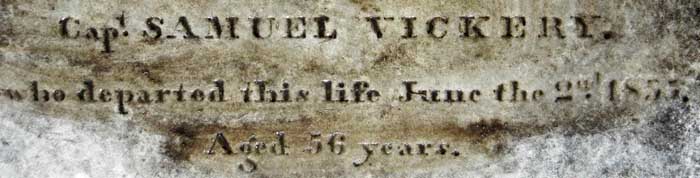 Capt. SAMUEL VICKERY.
who departed this life June the 2nd
Aged 56 years.